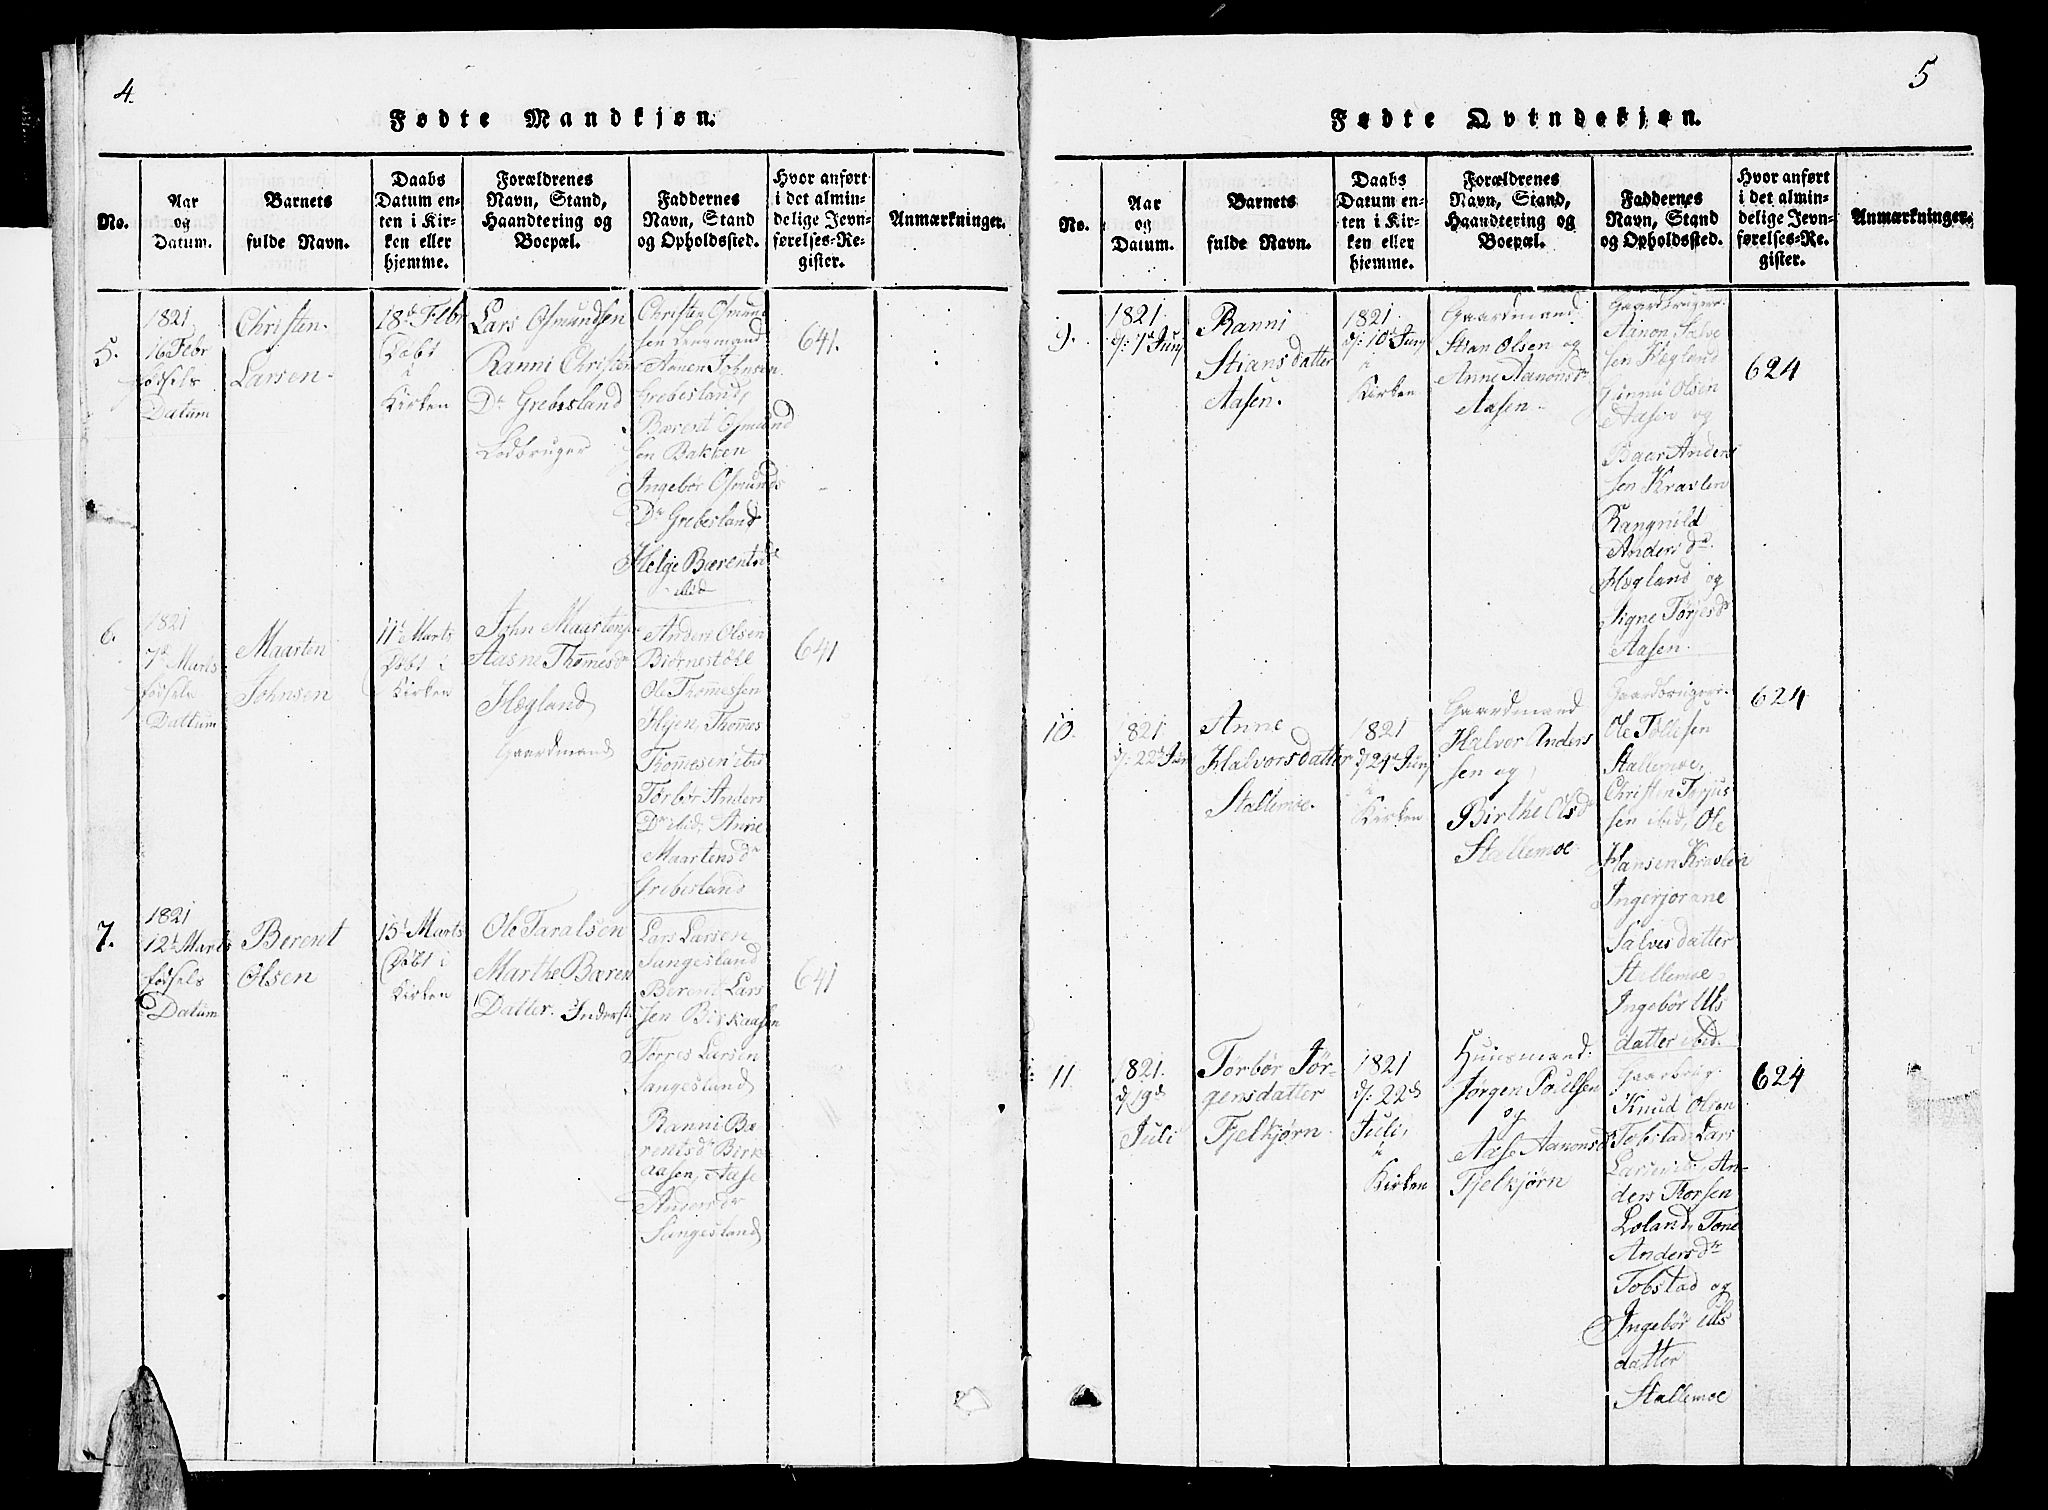 4.
Fødte Mandkjøn.
No.
Aar
og
Datum.
Barnets
fulde Navn.
Daabs
Datum en-
ten i Kir-
ken eller
hjemme.
Forældrenes
Navn, Stand,
Haandtering og
Boepæl.
Faddernes
Navn, Stand
og Opholdssted.
Hvor anført
i det almin-
delige Jevn-
førelses-Re-
gister.
Anmærkninger.
5.
1821
16 Febr
fødsels
Datum
Christen
Larsen
18de Febr
Døbt
i
Kirken
Lars Osmundsen
Ranni Christens
Dr Grebesland
Ledbruger
Christen Osmund
sen
Aanen Johnsen
Grebesland,
Bærent Osmund
sen Bakken
Ingebør Osmunds
Dr Grebesland
Helge Bærentsdr
ibid
641.
6.
1821
7de Marts
fødsels
Dattum
Maarten
Johnsen
11te Marts
Døbt i
Kirken
John Maartensen
Aasne Thommesdr
Hægland
Gaardmand
Anders Olsen
Biørnestøhl
Ole Thommessen
Thommes
Thommesen ibid
Torbør Anders
Dr ibid, Anne
Maartensdr
Grebesland
641
7.
1821
12te Marts
fødsels
Datum
Berent
Olsen
15de Marts
Døbt i
Kirken
Ole Taralsen
Marthe Bæren
Datter. Inderst.
Lars Larsen
Sangesland
Berent Lars
sen Birkaasen
Torres Larsen
Sangesland
Ranni Bæ
rentsdr Birk
aasen, Aase
Andersdr
Sangesland
641
5
Fødte Qvindekjøn.
No.
Aar
og
Datum.
Barnets
fulde Navn.
Daabs
Datum en-
ten i Kir-
ken eller
hjemme.
Forældrenes
Navn, Stand,
Haandtering og
Boepæl.
Faddernes
Navn, Stand
og Opholdssted.
Hvor anført
i det almin-
delige Jevn-
førelses-Re-
gister.
Anmærkninger.
9.
1821
d: 1te Junj
Ranni
Stians datter
Aasen.
1821
d: 10de Junj
i
Kirken
Gaardmand
Stian Olsen og
Anne Aanonsdr
Aasen.
Gaardbrugere
Aanon Salve
sen Hægland
Gunnu Olsen
Aasen og
Baar Anders
sen Kravlen
Rangnild
Andersdr.
Hægland og
Signe Torjesdr
Aasen.
624
10.
1821
d: 22de Juni
Anne
Halvors datter
Stallemoe.
1821
d/24de Junj
i
Kirken
Gaardmand
Halvor Anders
sen og
Birthe Olsdr
Stallemoe
Gaardbrugere.
Ole Tollefsen
Stallemoe,
Christen Terjus
sen ibid, Ole
Hansen Kravlen
Ingerjorane
Salves datter
Stallemoe,
Ingebør Uls
datter ibid.
624
11.
1821.
d/19de
Juli
Torbør Jør-
gensdatter
Fjelkjørn.
1821
d: 22de
Juli,
i
Kirken
Huusmand.
Jørgen Poulsen
og
Aase Aanonsdr
Fjelkjørn
Gaarbrug.
Knud Olsen
Tobstad, Lars
Larsen ibid, An-
ders Thorsen
Loland, Tone
Andersdr
Tobstad og
Ingebør Uls
datter
Stallemoe
624